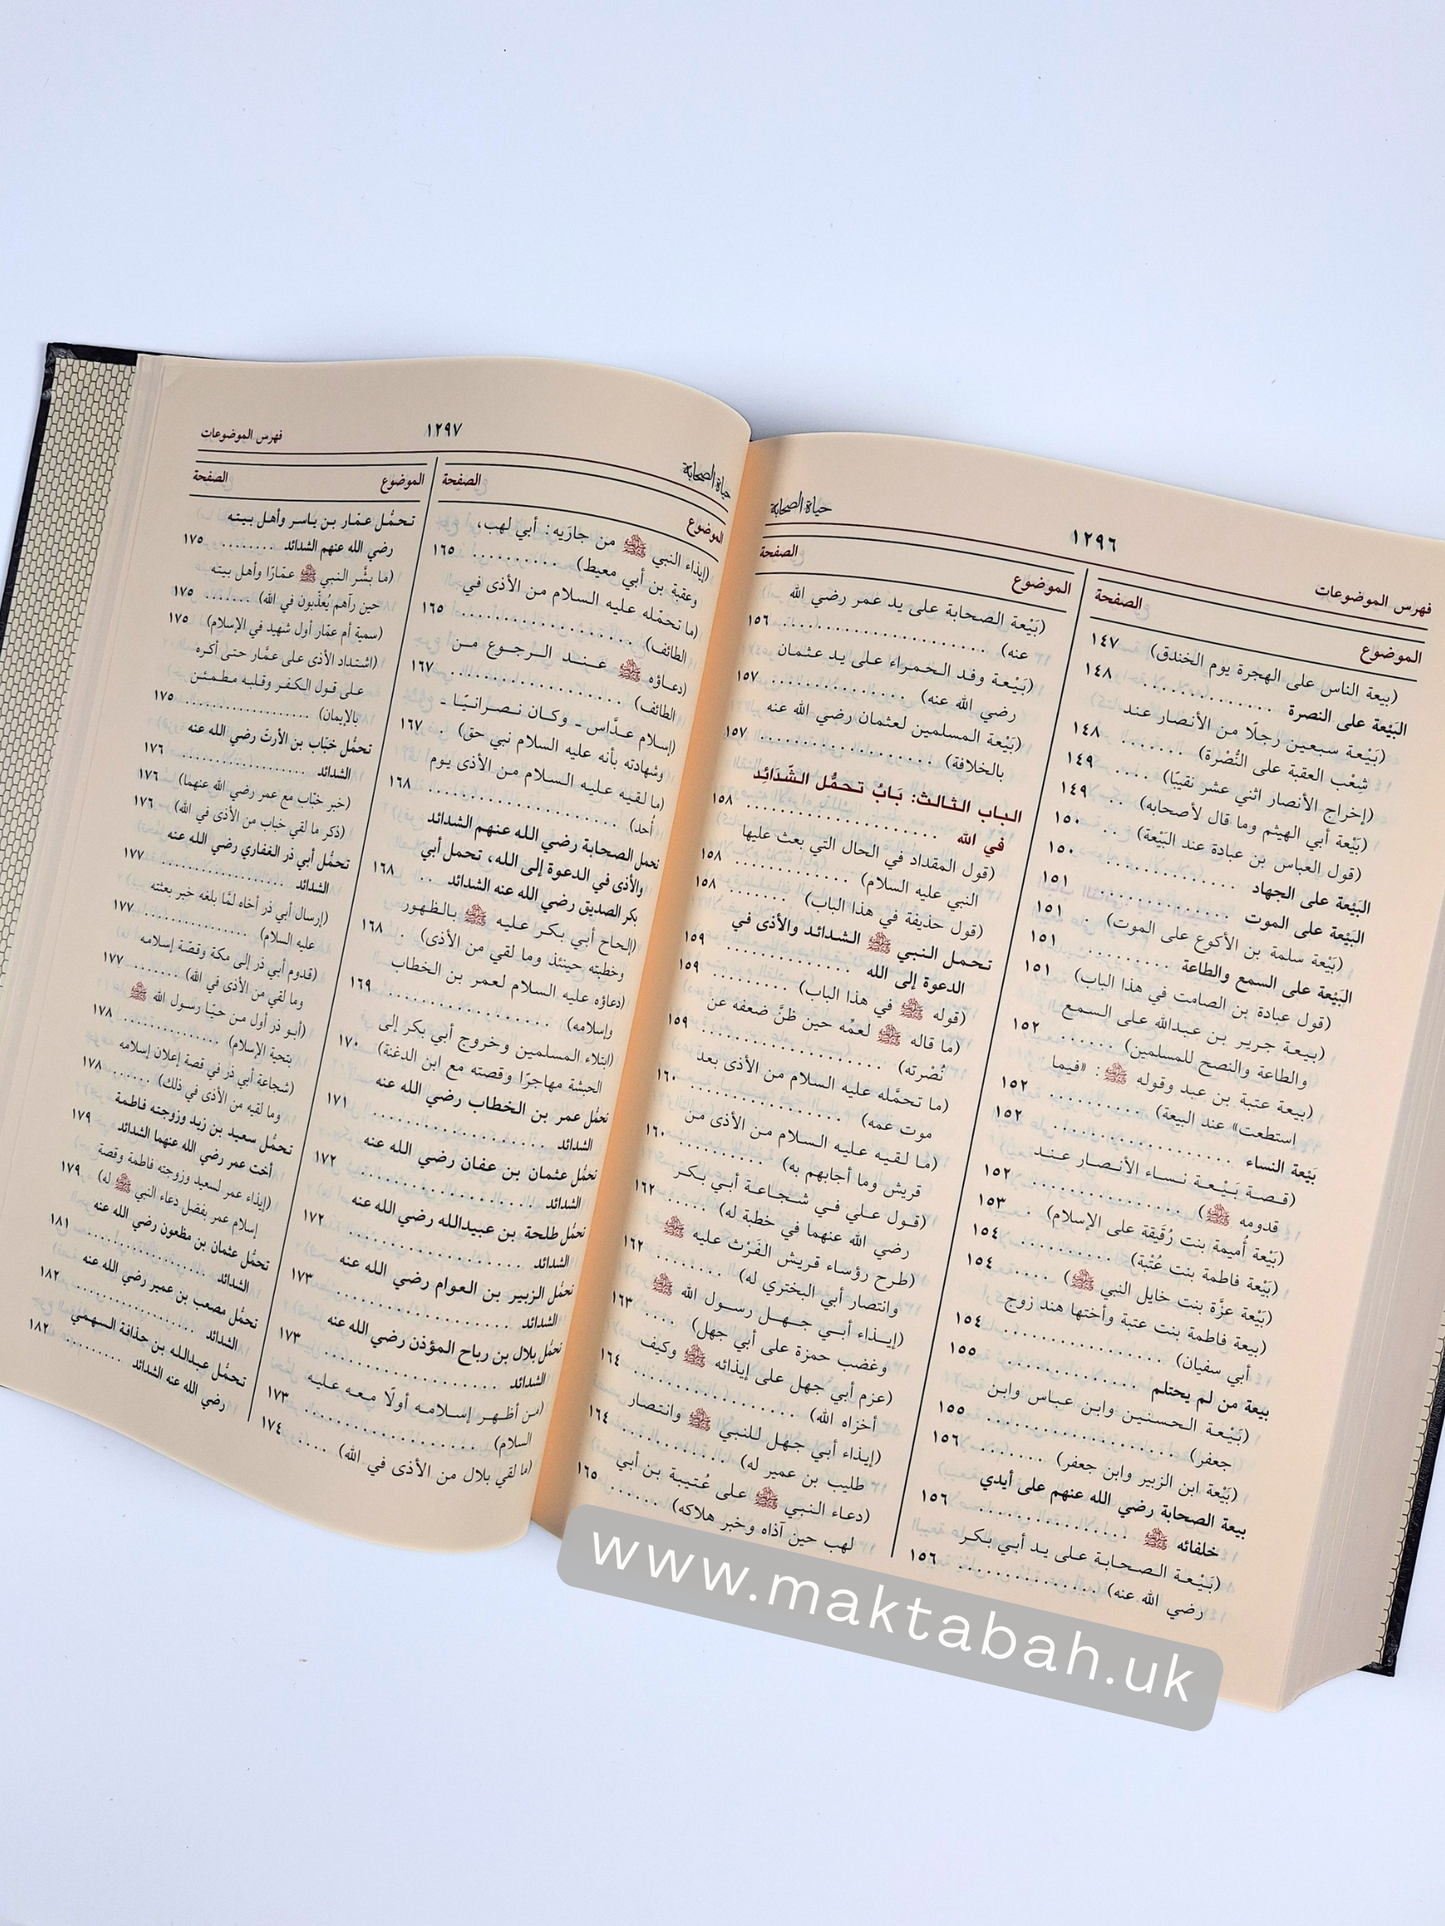 فهرس الموضوعات
١٢٩٦
حياة الصحابة
الموضوع الصفحة
(بيعة الناس على الهجرة يوم الخندق) ١٤٧
البَيْعة على النصرة ............ ١٤٨
(بَيْعة سبعين رجلًا من الأنصار عند
شِعْب العقبة على النُّصْرة) ....... ١٤٨
(إخراج الأنصار اثني عشر نقيبًا) .... ١٤٩
(بَيْعة أبي الهيثم وما قال لأصحابه) .. ١٤٩
(قول العباس بن عبادة عند البَيْعة) .. ١٥٠
البَيْعة على الجهاد ............ ١٥٠
البَيْعة على الموت ............ ١٥١
(بَيْعة سلمة بن الأكوع على الموت) . ١٥١
البَيْعة على السمع والطاعة ......... ١٥١
(قول عبادة بن الصامت في هذا الباب) ١٥١
(بـيـعـة جـريـر بـن عـبـدالله عـلـى الـسـمـع
والطاعة والنصح للمسلمين) ....... ١٥٢
(بيعة عتبة بن عبد وقوله ﷺ: «فيما
استطعت» عند البيعة) ........... ١٥٢
بَيْعة النساء .................. ١٥٢
(قـصـة بَـيْـعـة نـسـاء الأنـصـار عـنـد
قدومه ﷺ) ................ ١٥٢
(بَيْعة أُميمة بنت رُقَيْقة على الإسلام) . ١٥٣
(بَيْعة فاطمة بنت عُتْبة) .......... ١٥٤
(بَيْعة عزَّة بنت خايل النبي ﷺ) ..... ١٥٤
(بيعة فاطمة بنت عتبة وأختها هند زوج
أبي سفيان) ................ ١٥٤
بيعة من لم يحتلم ............ ١٥٥
(بَيْعة الحسنين وابن عباس وابن
جعفر) .................. ١٥٥
(بَيْعة ابن الزبير وابن جعفر) ....... ١٥٦
بيعة الصحابة رضي الله عنهم على أيدي
خلفائه ﷺ ................ ١٥٦
(بَـيْـعـة الـصـحـابـة عـلـى يـد أبـي بـكـر
رضي الله عنه) ............... ١٥٦
الموضوع الصفحة
(بَيْعة الصحابة على يد عمر رضي الله
عنه) .................... ١٥٦
(بَيْعـة وفـد الحـمـراء عـلـى يـد عـثـمـان
رضي الله عنه) ............... ١٥٧
(بَيْعة المسلمين لعثمان رضي الله عنه
بالخلافة) ................. ١٥٧
الباب الثالث: بَابُ تحمُّل الشّدَائد
في الله .................. ١٥٨
(قول المقداد في الحال التي بعث عليها
النبي عليه السلام) ............ ١٥٨
(قول حذيفة في هذا الباب) ....... ١٥٨
تحمل النبي ﷺ الشدائد والأذى في
الدعوة إلى الله .............. ١٥٩
(قوله ﷺ في هذا الباب) ......... ١٥٩
(ما قاله ﷺ لعمِّه حين ظنَّ ضعفه عن
نُصْرته) .................. ١٥٩
(ما تحمَّله عليه السلام من الأذى بعد
موت عمه) ................ ١٦٠
(مـا لـقـيـه عـلـيـه الـسـلام مـن الأذى مـن
قريش وما أجابهم به) .......... ١٦٠
(قـول عـلـي فـي شـجـاعـة أبـي بـكـر
رضي الله عنهما في خطبة له) ..... ١٦٢
(طرح رؤساء قريش الفَرْث عليه ﷺ
وانتصار أبي البختري له) ........ ١٦٢
(إيـذاء أبـي جـهـل رسـول الله ﷺ
وغضب حمزة على أبي جهل) .... ١٦٣
(عزم أبي جهل على إيذائه ﷺ وكيف
أخزاه الله) ................ ١٦٤
(إيذاء أبي جهل للنبي ﷺ وانتصار
طليب بن عمير له) ............ ١٦٤
(دعاء النبي ﷺ على عُتيبة بن أبي
لهب حين آذاه وخبر هلاكه) ...... ١٦٥
حياة الصحابة
١٢٩٧
فهرس الموضوعات
الموضوع الصفحة
(إيذاء النبي ﷺ من جارَيه: أبي لهب،
وعقبة بن أبي معيط) .......... ١٦٥
(ما تحمّله عليه السلام من الأذى في
الطائف) .................. ١٦٥
(دعـاؤه ﷺ عـنـد الـرجـوع مـن
الطائف) .................. ١٦٧
(إسلام عدَّاس ـ وكـان نـصـرانـيًـا ـ
وشهادته بأنه عليه السلام نبي حق) . ١٦٧
(ما لقيه عليه السلام من الأذى يوم
أُحد) ................... ١٦٨
تحمل الصحابة رضي الله عنهم الشدائد
والأذى في الدعوة إلى الله، تحمل أبي
بكر الصديق رضي الله عنه الشدائد .. ١٦٨
(إلحاح أبي بكر عليه ﷺ بالظهور
وخطبته حينئذ وما لقي من الأذى) . ١٦٨
(دعاؤه عليه السلام لعمر بن الخطاب
وإسلامه) ................. ١٦٩
(ابتلاء المسلمين وخروج أبي بكر إلى
الحبشة مهاجرًا وقصته مع ابن الدغنة) ١٧٠
تحمُّل عمر بن الخطاب رضي الله عنه
الشدائد .................. ١٧١
تحمُّل عثمان بن عفان رضي الله عنه
الشدائد .................. ١٧٢
تحمُّل طلحة بن عبيدالله رضي الله عنه
الشدائد .................. ١٧٢
تحمُّل الزبير بن العوام رضي الله عنه
الشدائد .................. ١٧٣
تحمُّل بلال بن رباح المؤذن رضي الله عنه
الشدائد .................. ١٧٣
(من أظـهـر إسـلامـه أولًا مـعـه عـلـيـه
السلام) .................. ١٧٣
(ما لقي بلال من الأذى في الله) .... ١٧٤
الموضوع الصفحة
تحمُّل عمّار بن ياسر وأهل بيته
رضي الله عنهم الشدائد ........ ١٧٥
(ما بشَّر النبي ﷺ عمّارًا وأهل بيته
حين رآهم يُعذَّبون في الله) ...... ١٧٥
(سمية أم عمّار أول شهيد في الإسلام) ١٧٥
(اشتداد الأذى على عمَّار حتى أكره
على قول الكفر وقلبه مطمئن
بالإيمان) ................. ١٧٥
تحمُّل خبّاب بن الأرتّ رضي الله عنه
الشدائد .................. ١٧٦
(خبر خبّاب مع عمر رضي الله عنهما) ١٧٦
(ذكر ما لقي خباب من الأذى في الله) ١٧٦
تحمُّل أبي ذر الغفاري رضي الله عنه
الشدائد .................. ١٧٧
(إرسال أبي ذر أخاه لمَّا بلغه خبر بعثته
عليه السلام) ............... ١٧٧
(قدوم أبي ذر إلى مكة وقصّة إسلامه
وما لقي من الأذى في الله) ....... ١٧٧
(أبو ذر أول من حيّا رسول الله ﷺ
بتحية الإسلام) .............. ١٧٨
(شجاعة أبي ذر في قصة إعلان إسلامه
وما لقيه من الأذى في ذلك) ...... ١٧٨
تحمُّل سعيد بن زيد وزوجته فاطمة
أخت عمر رضي الله عنهما الشدائد ١٧٩
(إيذاء عمر لسعيد وزوجته فاطمة وقصة
إسلام عمر بفضل دعاء النبي ﷺ له) ١٧٩
تحمُّل عثمان بن مظعون رضي الله عنه
الشدائد .................. ١٨١
تحمُّل مصعب بن عمير رضي الله عنه
الشدائد .................. ١٨٢
تحمُّل عبدالله بن حذافة السهمي
رضي الله عنه الشدائد ......... ١٨٢
www.maktabah.uk